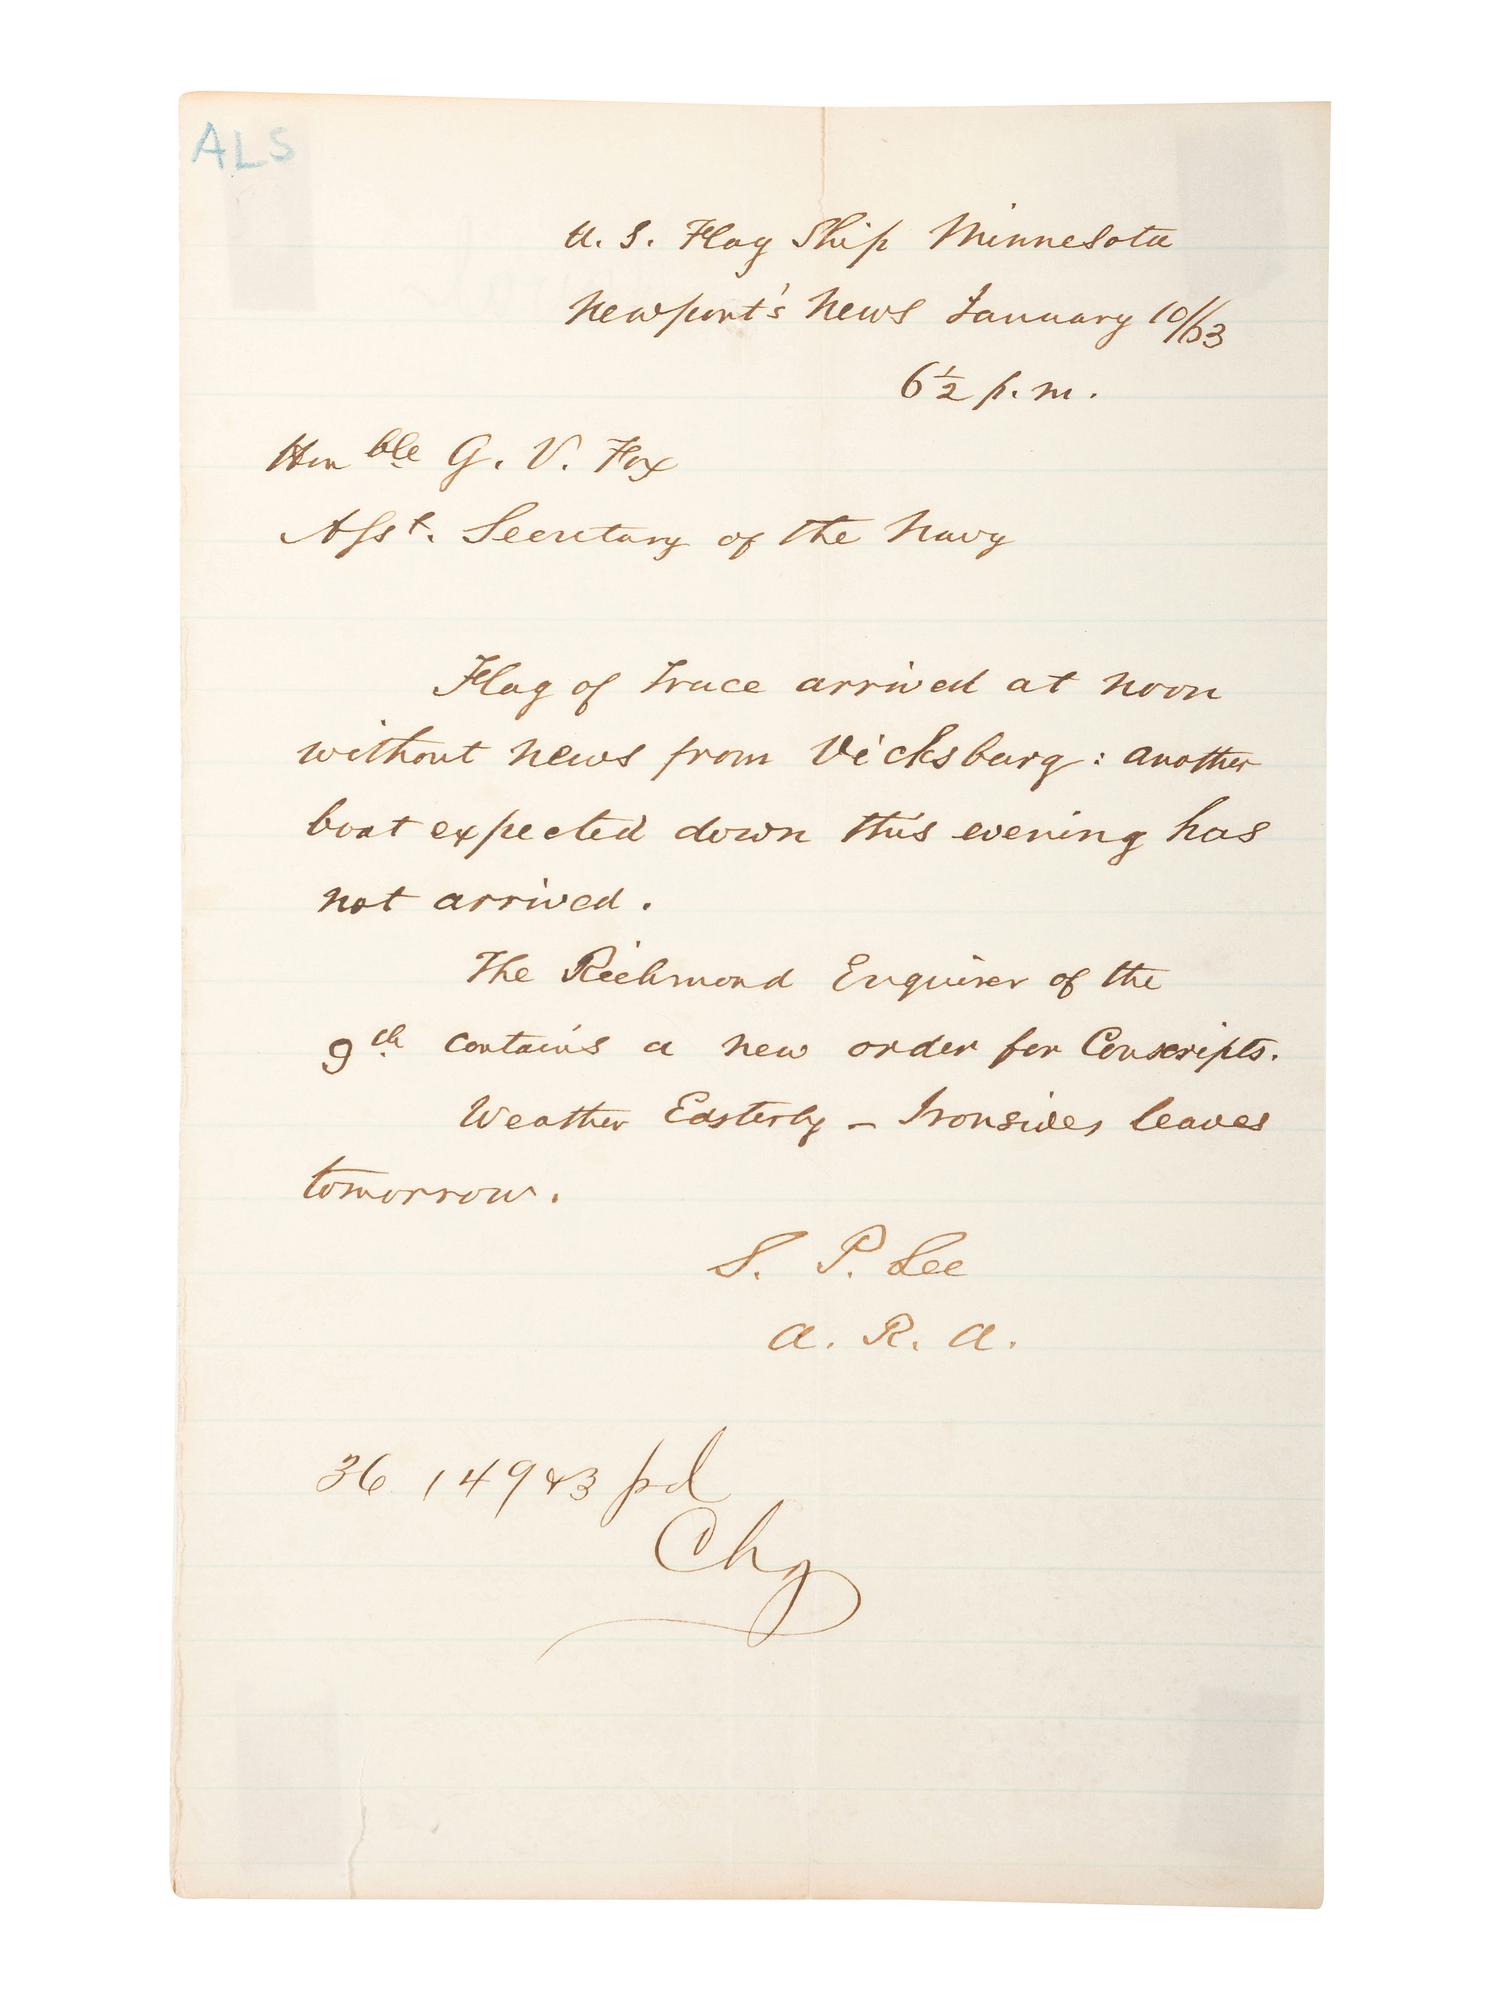 ALS
U. S. Flag Ship Minnesota
Newport's News January 10/63
6½ p. m.
Hon ble G. V. Fox
Asst. Secretary of the Navy
Flag of Truce arrived at noon
without news from Vicksburg: another
boat expected down this evening has
not arrived.
The Richmond Enquirer of the
9th contains a new order for Conscripts.
Weather Easterly – Ironsides leaves
tomorrow.
S. P. Lee
A. R. A.
36 149 & 3 pd
Chg